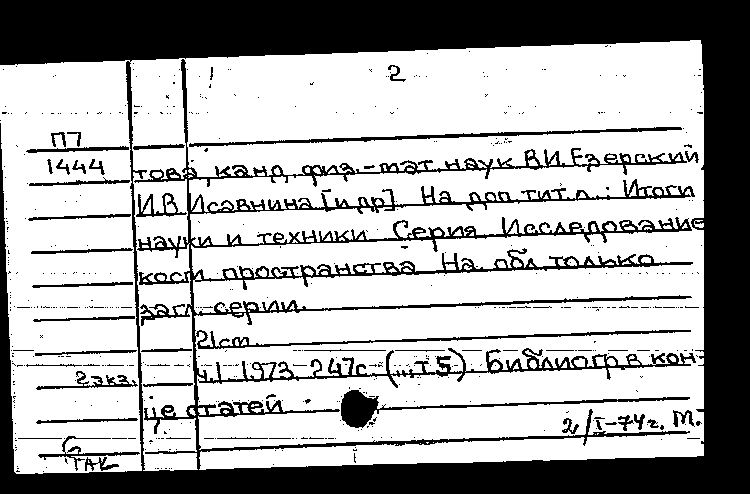 2
П7
1444
това, канд. физ.-мат. наук В.И. Езерский,
И.В. Исавнина [и др]. На доп. тит. л.: Итоги
науки и техники Серия Исследование
косм. пространства На обл. только
загл. серии.
21 см.
2 экз. ч.1. 1973. 247 с. (..., т 5). Библиогр. в кон-
це статей
2/I-74 г. М.
ТАК